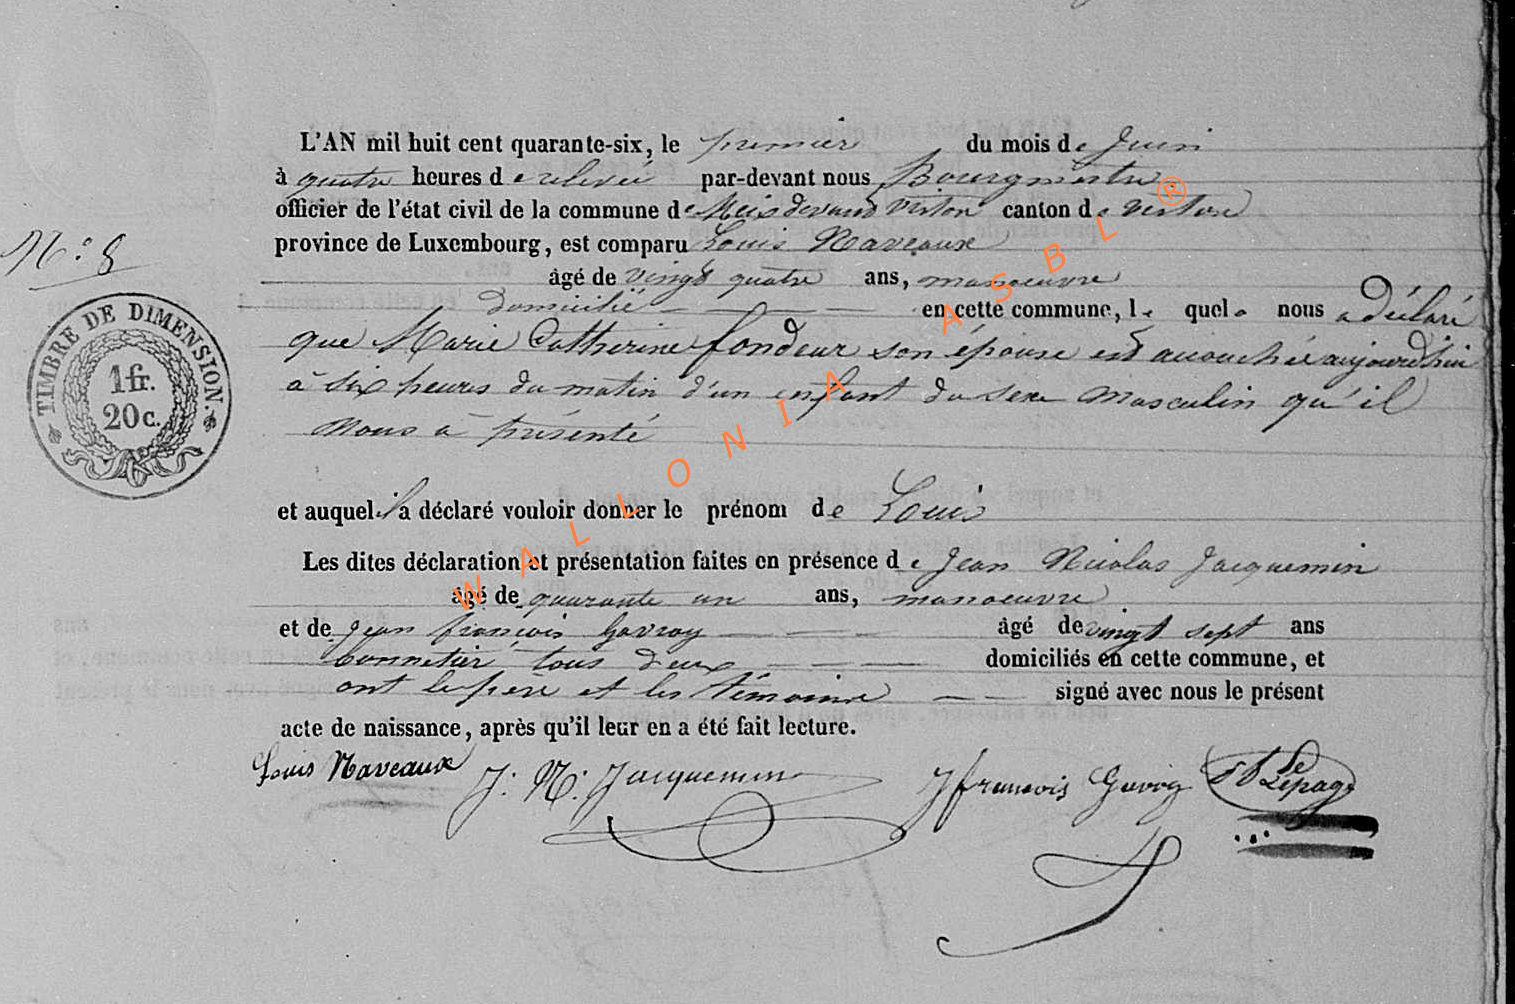 L'AN mil huit cent quarante-six, le premier du mois de Juin
à quatre heures de relevée par-devant nous Bourgmestre
officier de l'état civil de la commune de Meix devant Virton canton de virton
province de Luxembourg, est comparu Louis Naveaux
N.o 8
âgé de vingt quatre ans, manoeuvre
domicilié en cette commune, le quel nous a déclaré
que Marie Catherine fondeur son épouse est accouchée aujourd'hui
à six heures du matin d'un enfant du sexe masculin qu'il
nous à présenté
TIMBRE DE DIMENSION.
1 fr.
20 c.
et auquel il a déclaré vouloir donner le prénom de Louis
Les dites déclaration et présentation faites en présence de Jean Nicolas Jacquemin
âgé de quarante un ans, manoeuvre
et de Jean françois Gavroy âgé de vingt sept ans
bonnetier tous deux domiciliés en cette commune, et
ont le père et les témoins signé avec nous le présent
acte de naissance, après qu'il leur en a été fait lecture.
Louis Naveaux J. N. Jacquemin J françois Gavroy Lepage
WALLONIA ASBL ®